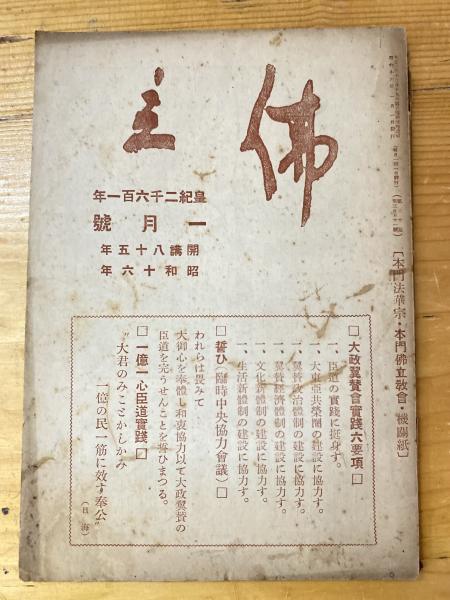 佛立
皇紀二千六百一年
一月號
開講八十五年
昭和十六年
［本門法華宗・本門佛立教會・機關紙］
□大政翼賛會實践六要項□
一、臣道の實践に挺身す。
一、大東亞共榮圏の建設に協力す。
一、翼賛政治體制の建設に協力す。
一、翼賛經濟體制の建設に協力す。
一、文化新體制の建設に協力す。
一、生活新體制の建設に協力す。
□誓ひ（臨時中央協力會議）□
われらは畏みて
大御心を奉體し和衷協力以て大政翼賛の
臣道を完うせんことを誓ひまつる。
□一億一心臣道實践□
“大君のみことかしかみ
一億の民一筋に效す奉公”